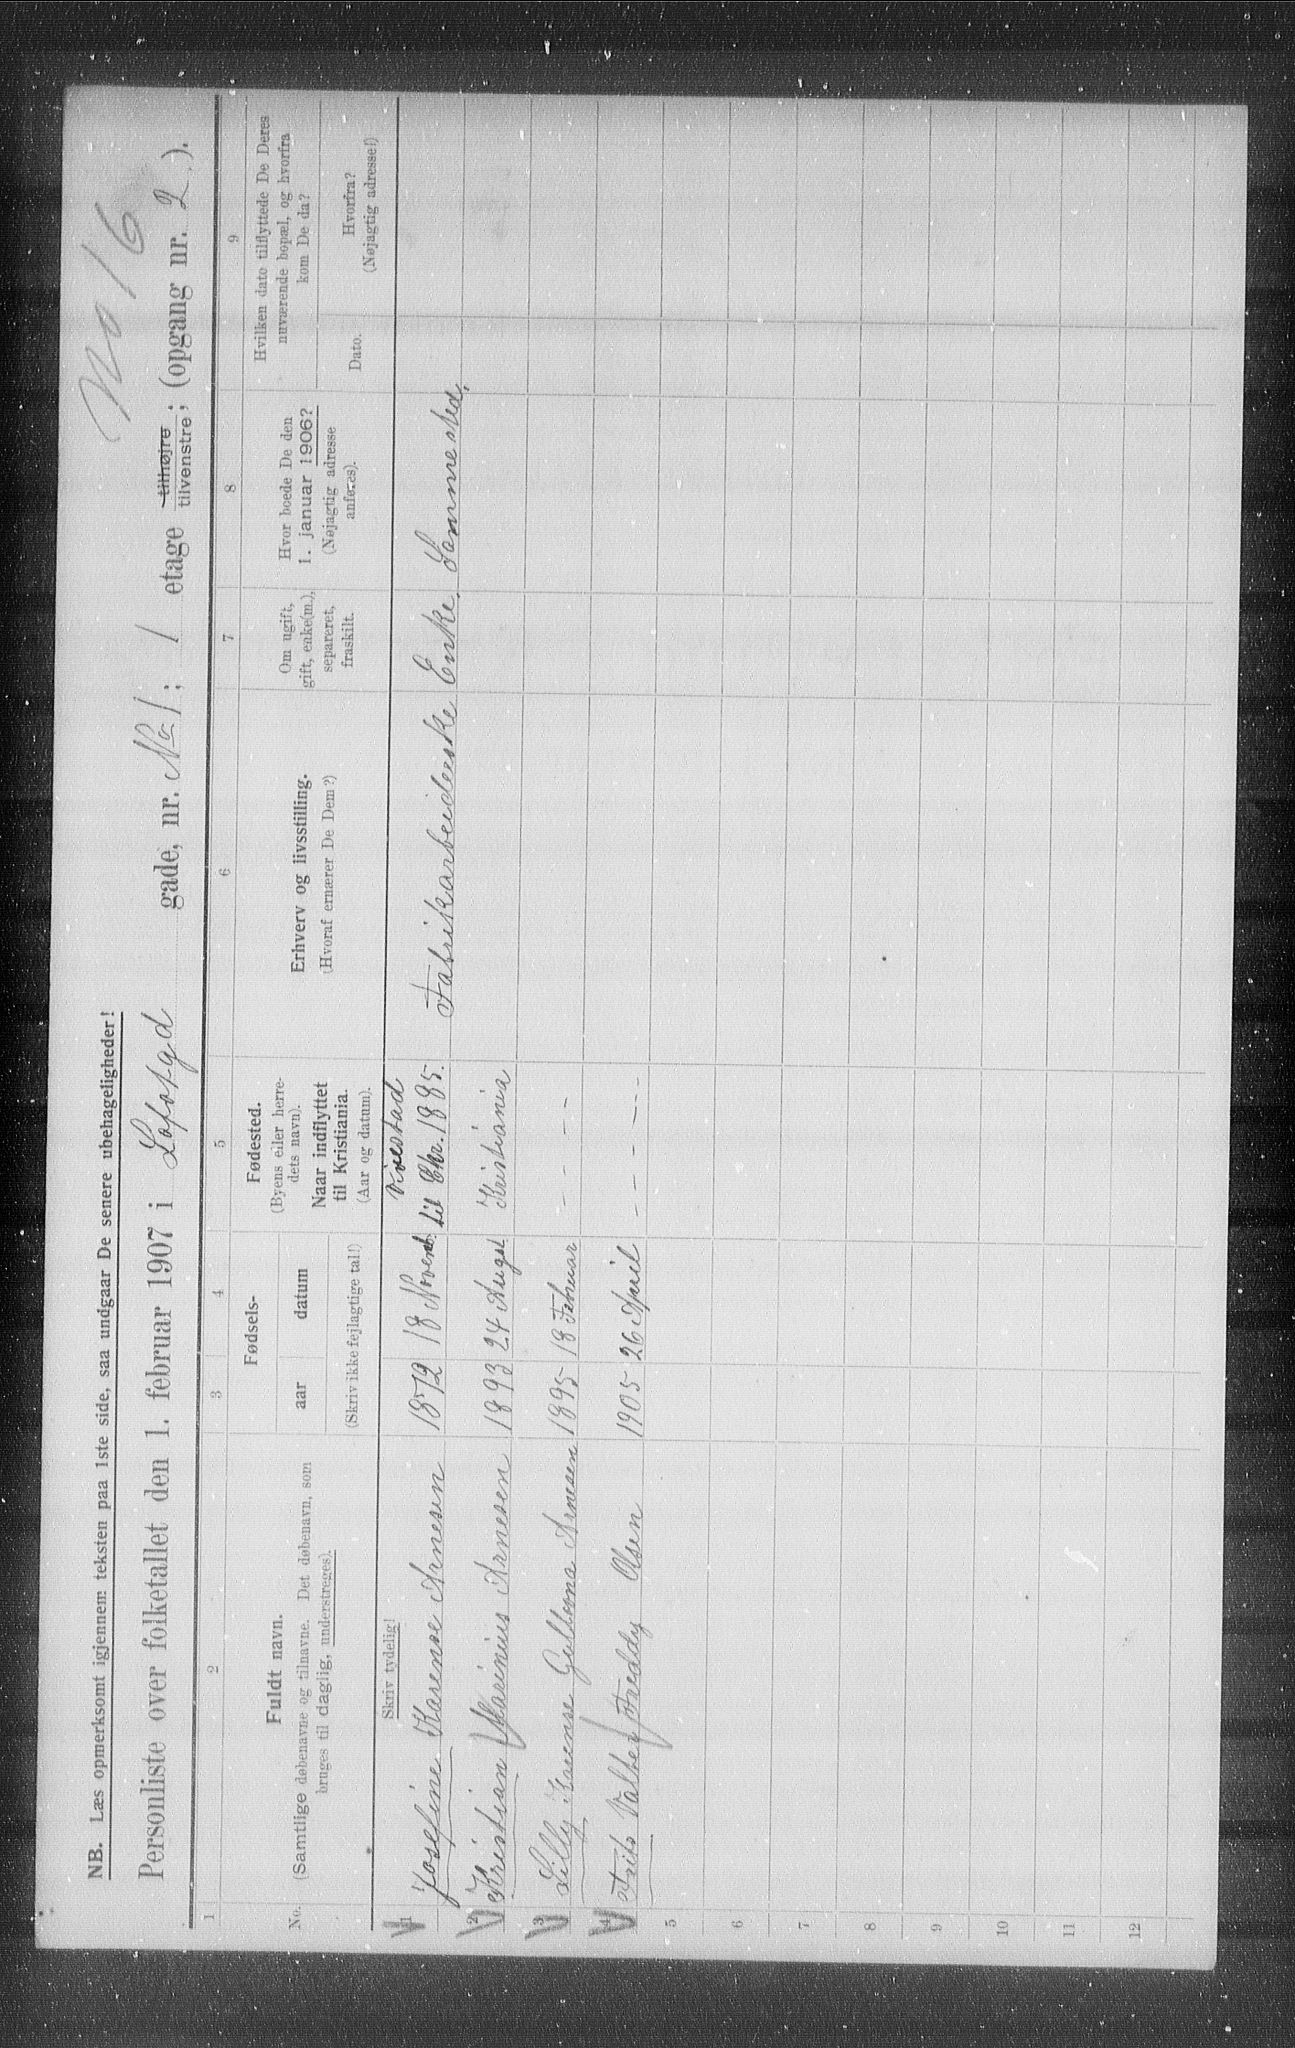 No 16
NB. Læs opmerksomt igjennem teksten paa 1ste side, saa undgaar De senere ubehageligheder!
Personliste over folketallet den 1. februar 1907 i Lofotgd gade, nr. No 1; 1 etage tilhøjre; tilvenstre; (opgang nr. 2).
1 2 3 4 5 6 7 8 9
No.
Fuldt navn.
(Samtlige døbenavne og tilnavne. Det døbenavn, som
bruges til daglig, understreges).
Skriv tydelig!
Fødsels-
aar datum
(Skriv ikke fejlagtige tal!)
Fødested.
(Byens eller herre-
dets navn).
Naar indflyttet
til Kristiania.
(Aar og datum).
Erhverv og livsstilling.
(Hvoraf ernærer De Dem?)
Om ugift,
gift, enke(m.),
separeret,
fraskilt.
Hvor boede De den
1. januar 1906?
(Nøjagtig adresse
anføres).
Hvilken dato tilflyttede De Deres
nuværende bopæl, og hvorfra
kom De da?
Dato.
Hvorfra?
(Nøjagtig adresse!)
1 Josefine Karense Arnesen 1872 18 Novemb. til Chr. 1885. Fabrikarbeiderske Enke. Samme sted.
2 Kristian Marinius Arnesen 1893 24 Augst Kristiania
3 Lilly Karense Arnesen 1895 18 Februar - - -
4 Frits Valber Freddy Olsen 1905 26 April - - - -
5
6
7
8
9
10
11
12